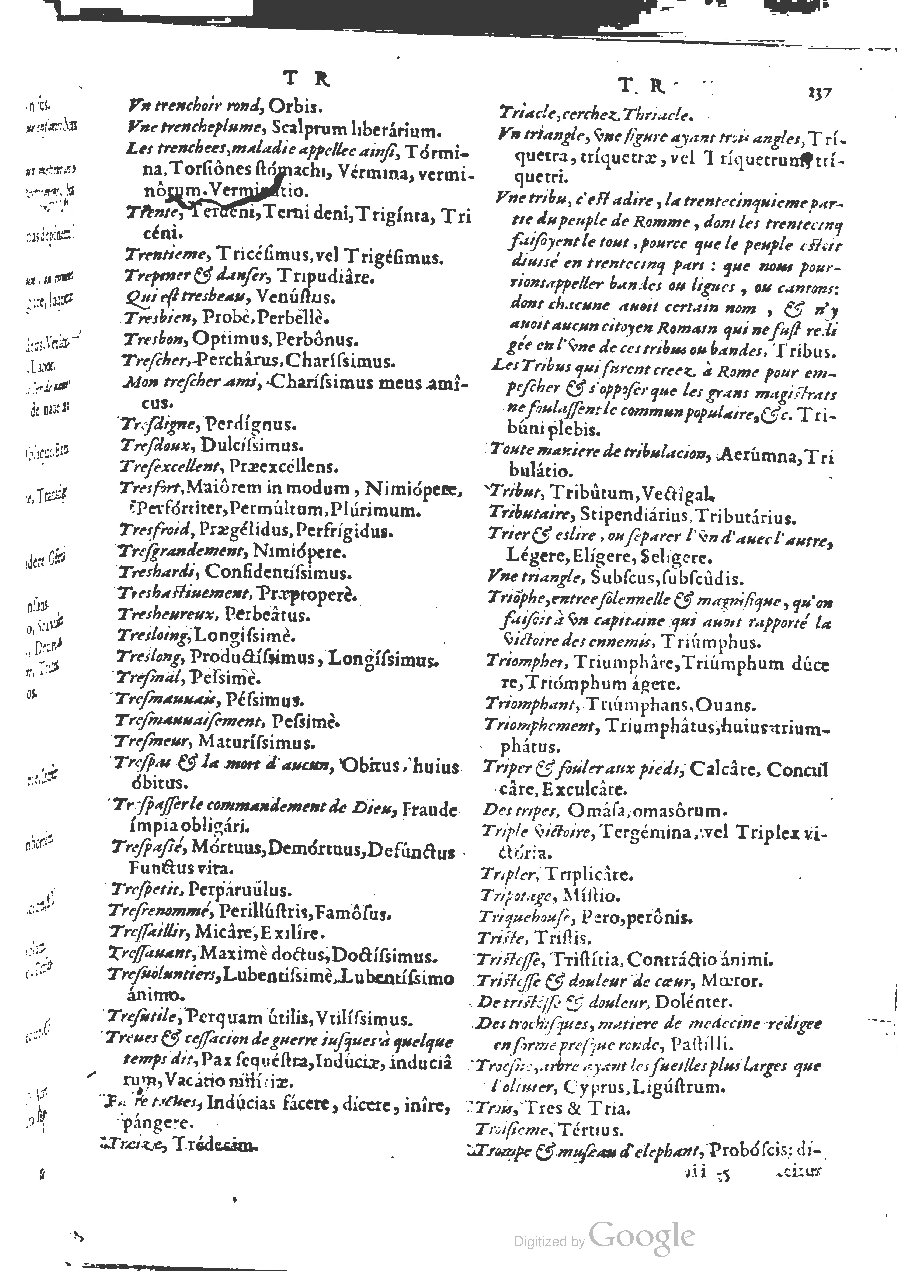 T R
Vn trenchoir rond, Orbis.
Vne trencheplume, Scalprum liberárium.
Les trenchees, maladie appellee ainsi, Tórmi-
na, Torsiônes stómachi, Vérmina, vermi-
nôrum. Verminatio.
Trente, Terdeni, Terni deni, Trigínta, Tri
céni.
Trentieme, Tricésimus, vel Trigésimus.
Trepener & danser, Tripudiâre.
Qui est tresbeau, Venústus.
Tresbien, Probè, Perbèllè.
Tresbon, Optimus, Perbônus.
Trescher, Perchârus, Charíssimus.
Mon trescher ami, Charíssimus meus amî-
cus.
Tresdigne, Perdígnus.
Tresdoux, Dulcíssimus.
Tresexcellent, Præexcéllens.
Tresfort, Maiôrem in modum, Nimiópere,
Perfórtiter, Permúltum, Plúrimum.
Tresfroid, Prægélidus, Perfrígidus.
Tresgrandement, Nimiópere.
Treshardi, Confidentíssimus.
Treshastiuement, Præptoperè.
Tresheureux, Perbeâtus.
Tresloing, Longíssimè.
Treslong, Productíssimus, Longíssimus.
Tresmal, Pessimè.
Tresmauuais, Péssimus.
Tresmauuaisement, Pessimè.
Tresmeur, Maturíssimus.
Trespas & la mort d'aucun, Obitus, huius
óbitus.
Trespasser le commandement de Dieu, Fraude
ímpia obligári.
Trespassé, Mórtuus, Demórtuus, Defúnctus
Functus vita.
Trespetit, Perpáruülus.
Tresrenommé, Perillústris, Famôsus.
Tressaillir, Micâre, Exilíre.
Tressauant, Maximè doctus, Doctíssimus.
Tresuoluntiers, Lubentíssimè, Lubentíssimo
ánimo.
Tresutile, Perquam útilis, Vtilíssimus.
Treues & cessacion de guerre iusques à quelque
temps dit, Pax sequéstra, Indúciæ, induciâ
rum, Vacátio milítiæ.
Faire treues, Indúcias fácere, dicere, inîre,
pángere.
Treize, Trédecim.
T. R
237
Triacle, cerchez Thriacle.
Vn triangle, vne figure ayant trois angles, Trí-
quetra, tríquetræ, vel Tríquetrum, trí-
quetri.
Vne tribu, c'est adire, la trentecinquieme par-
tie du peuple de Romme, dont les trentecinq
faisoyent le tout, pource que le peuple estoit
diuisé en trentecinq pars: que nous pour-
rions appeller bandes ou ligues, ou cantons:
dont chacune auoit certain nom, & n'y
auoit aucun citoyen Romain qui ne fust redi
gée en l'vne de ces tribus ou bandes, Tribus.
Les Tribus qui furent creez à Rome pour em-
pescher & s'opposer que les grans magistrats
ne foulassent le commun populaire, &c. Tri-
búni plebis.
Toute maniere de tribulacion, Aerúmna, Tri
bulátio.
Tribut, Tribûtum, Vectígal.
Tributaire, Stipendiárius, Tributárius.
Trier & eslire, ou separer l'vn d'auec l'autre,
Légere, Elígere, Seligere.
Vne triangle, Subscus, subscûdis.
Triõphe, entree solennelle & magnifique, qu'on
faisoit à vn capitaine qui auoit rapporté la
victoire des ennemis, Triúmphus.
Triompher, Triumphâre, Triúmphum dúce
re, Triómphum ágere.
Triomphant, Triúmphans, Ouans.
Triomphement, Triumphâtus, huius trium-
phátus.
Triper & fouler aux pieds, Calcâre, Concul
câre, Exculcâre.
Des tripes, Omása, omasôrum.
Triple victoire, Tergémina, vel Triplex vi-
ctória.
Tripler, Triplicâre.
Tripotage, Místio.
Triquehouse, Pero, perônis.
Triste, Tristis.
Tristesse, Tristítia, Contráctio ánimi.
Tristesse & douleur de cœur, Mœror.
De tristesse & douleur, Dolénter.
Des trochisques, matiere de medecine redigee
en forme presque ronde, Pastílli.
Troesne, arbre ayant les fueilles plus larges que
l'oliuier, Cyprus, Ligústrum.
Trois, Tres & Tria.
Troisieme, Tértius.
Trompe & museau d'elephant, Probóscis: di-
Digitized by Google